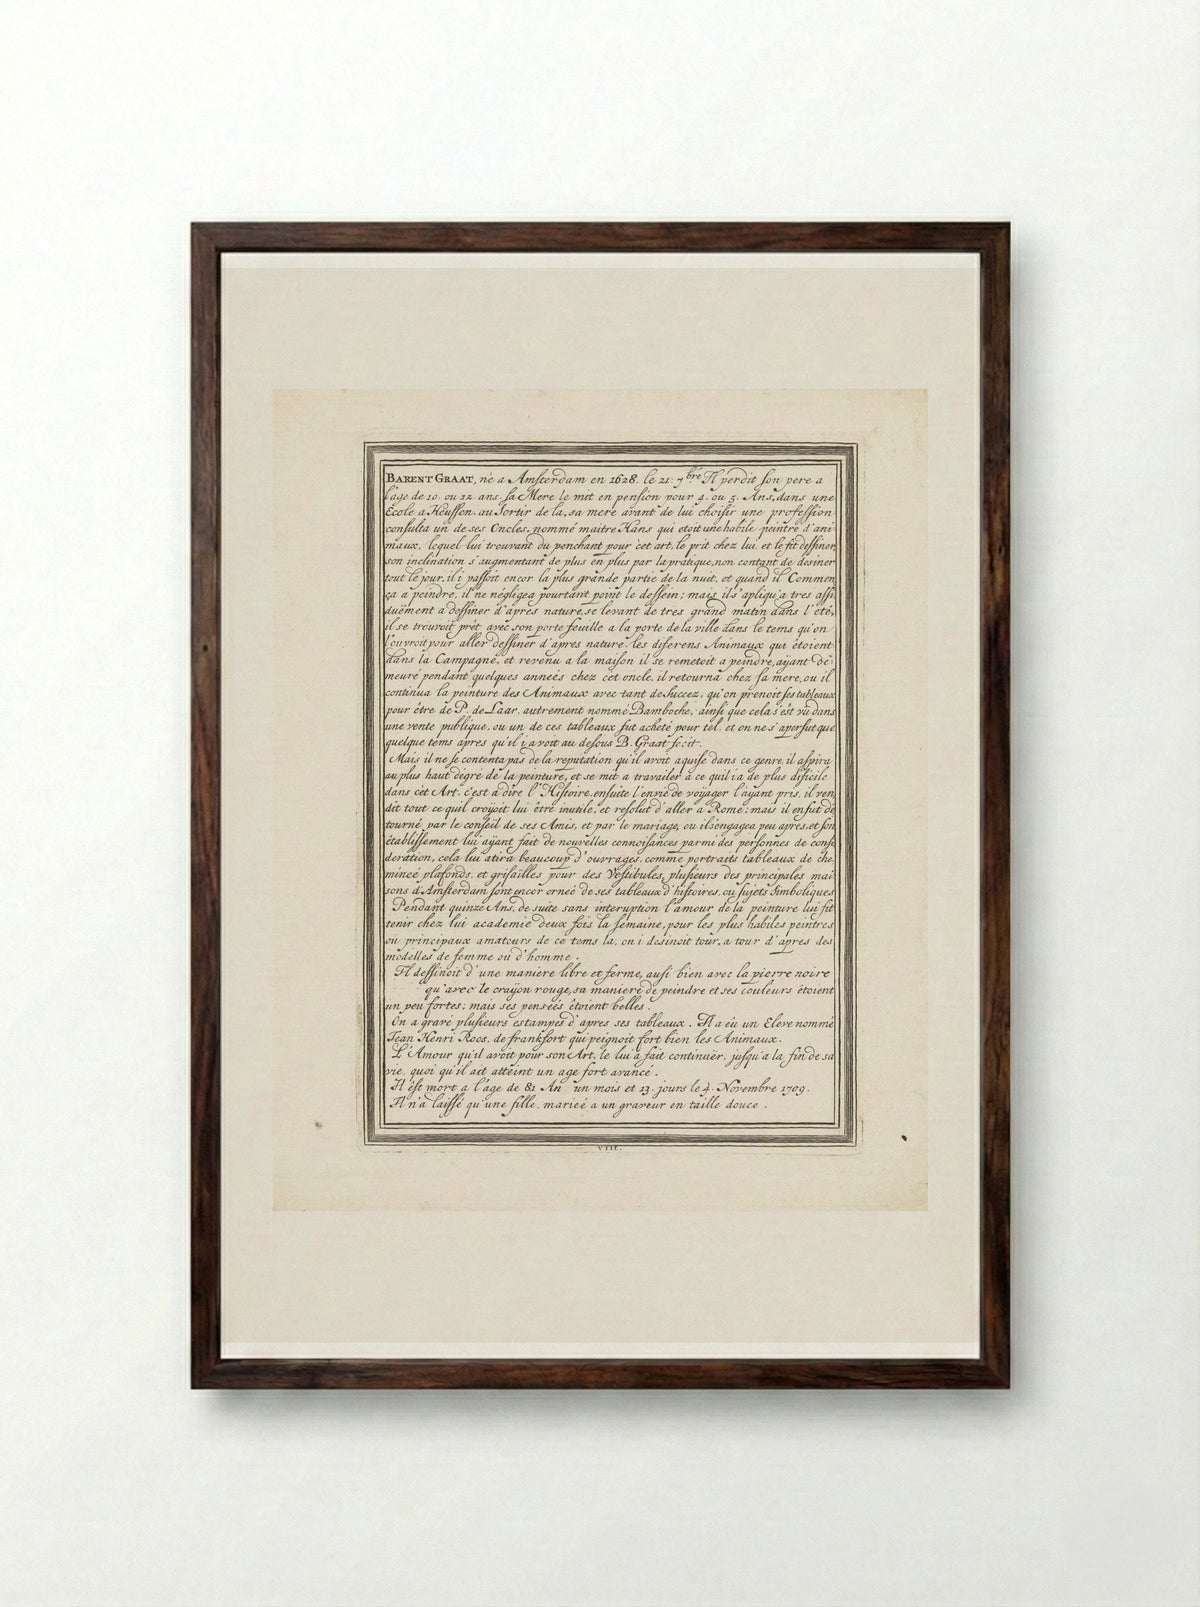 BARENT GRAAT, né a Amsterdam en 1628. le 21. 7bre Il perdit son pere a
l'age de 10. ou 12. ans. sa Mere le mit en pension pour 4. ou 5. Ans, dans une
Ecole a Heussen. au sortir de la, sa mere avant de lui choisir une profession
consulta un de ses Oncles, nommé maitre Hans qui etoit une habile peintre d'ani
maux, lequel lui trouvant du penchant pour cet art, le prit chez lui. et le fit dessiner,
son inclination s'augmentant de plus en plus par la pratique, non contant de desiner
tout le jour, il i passoit encor la plus grande partie de la nuit, et quand il Commen
ça a peindre, il ne négligea pourtant point le dessein; mais il s'apliqu'a tres assi
duëment a dessiner d'apres nature, se levant de tres grand matin dans l'eté,
il se trouvoit prêt avec son porte feuille a la porte de la ville dans le tems qu'on
l'ouvroit pour aller dessiner d'apres nature les diferens Animaux qui étoient
dans la Campagne, et revenu a la maison il se remetoit a peindre, aÿant de
meuré pendant quelques années chez cet oncle, il retourna chez sa mere, ou il
continua la peinture des Animaux avec tant de succez, qu'on prenoit ses tableaux
pour être de P. de Laar, autrement nommé Bamboche, ainsi que cela s'est vû dans
une vente publique, ou un de ces tableaux fut acheté pour tel, et on ne s'aperçut que
quelque tems apres qu'il i avoit au desous B. Graat fecit.
Mais il ne se contenta pas de la reputation qu'il avoit aquise dans ce genre, il aspira
au plus haut dégre de la peinture, et se mit a travailer a ce quil i a de plus dificile
dans cet Art, c'est a dire l'Histoire, ensuite l'envie de voÿager l'aÿant pris, il ven
dit tout ce quil croÿoit lui être inutile, et resolut d'aller a Rome; mais il en fut dé
tourné par le conseil de ses Amis, et par le mariage, ou il s'engagea peu apres, et son
établissement lui aÿant fait de nouvelles connoisances parmi des personnes de consi
deration, cela lui atira beaucoup d'ouvrages, comme portraits tableaux de che
mineé plafonds, et grisailles pour des Vestibules, plusieurs des principales mai
sons d'Amsterdam sont encor orneé de ses tableaux d'histoires, ou sujets Simboliques
Pendant quinze Ans, de suite sans interuption l'amour de la peinture lui fit
tenir chez lui academie deux fois la semaine, pour les plus habiles peintres
ou principaux amateurs de ce tems la, on i desinoit tour, a tour d'apres des
modelles de femme ou d'homme.
Il dessinoit d'une maniere libre et ferme, ausi bien avec la pierre noire
qu'avec le craÿon rouge, sa maniere de peindre et ses couleurs étoient
un peu fortes; mais ses penseés étoient belles.
On a gravé plusieurs estampes d'apres ses tableaux. Il a eû un Eleve nommé
Jean Henri Roos, de frankfort qui peignoit fort bien les Animaux.
L'Amour qu'il avoit pour son Art, le lui a fait continuer, jusqu'a la fin de sa
vie, quoi qu'il ait atteint un age fort avancé.
Il est mort a l'âge de 81 An un mois et 13. jours le 4. Novembre 1709.
Il n'a laissé qu'une fille, marieé a un graveur en taille douce.
VIII.